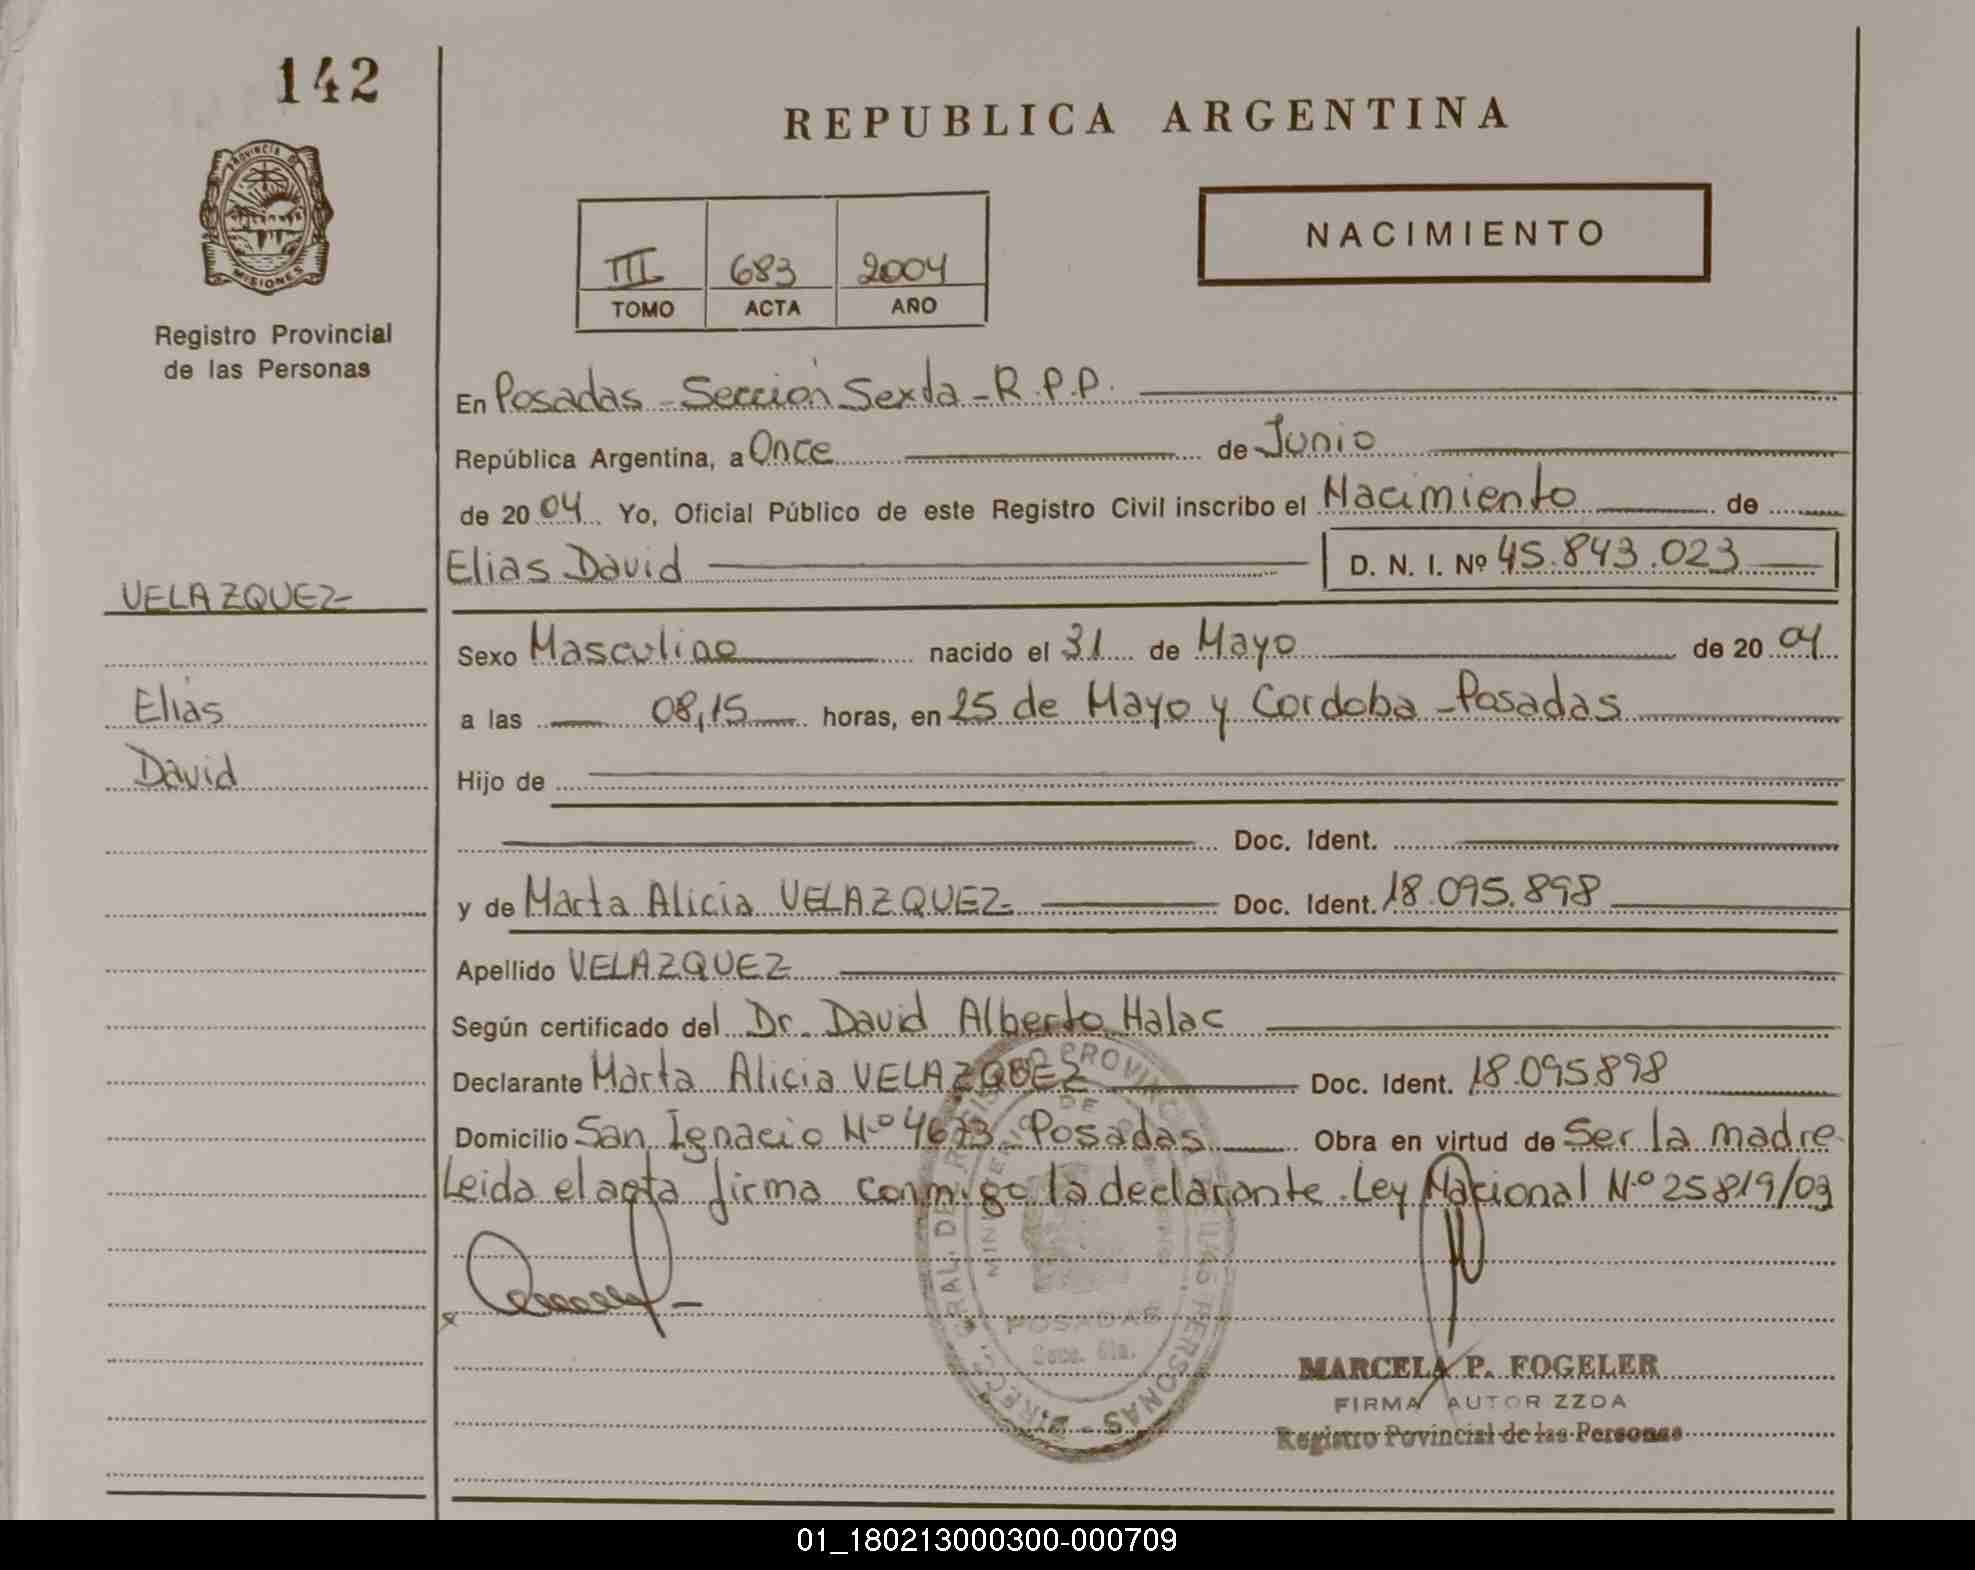 142
REPUBLICA ARGENTINA
PROVINCIA DE
MISIONES
NACIMIENTO
III 683 2004
TOMO ACTA AÑO
Registro Provincial
de las Personas
En Posadas - Sección Sexta - R.P.P.
República Argentina, a Once de Junio
de 2004 Yo, Oficial Público de este Registro Civil inscribo el Nacimiento de
Elias David D. N. I. Nº 45.843.023
VELAZQUEZ
Sexo Masculino nacido el 31 de Mayo de 2004
Elias
a las 08,15 horas, en 25 de Mayo y Cordoba - Posadas
David
Hijo de
Doc. Ident.
y de Marta Alicia VELAZQUEZ Doc. Ident. 18.095.898
Apellido VELAZQUEZ
Según certificado del Dr. David Alberto Halac
Declarante Marta Alicia VELAZQUEZ Doc. Ident. 18.095.898
Domicilio San Ignacio Nº 4673 Posadas Obra en virtud de Ser la madre
Leida el acta firma conmigo la declarante. Ley Nacional Nº 25819/03
POSADAS
MARCELA P. FOGELER
FIRMA AUTOR ZZDA
Registro Povincial de las Personas
01_180213000300-000709